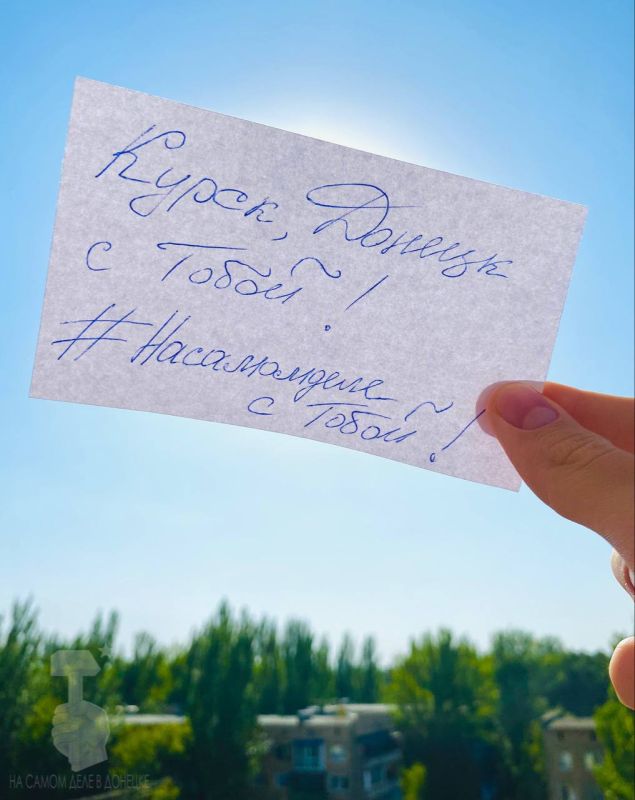 Курск, Донецк
с Тобой!
#Насамомделе
с Тобой!
НА САМОМ ДЕЛЕ В ДОНЕЦКЕ